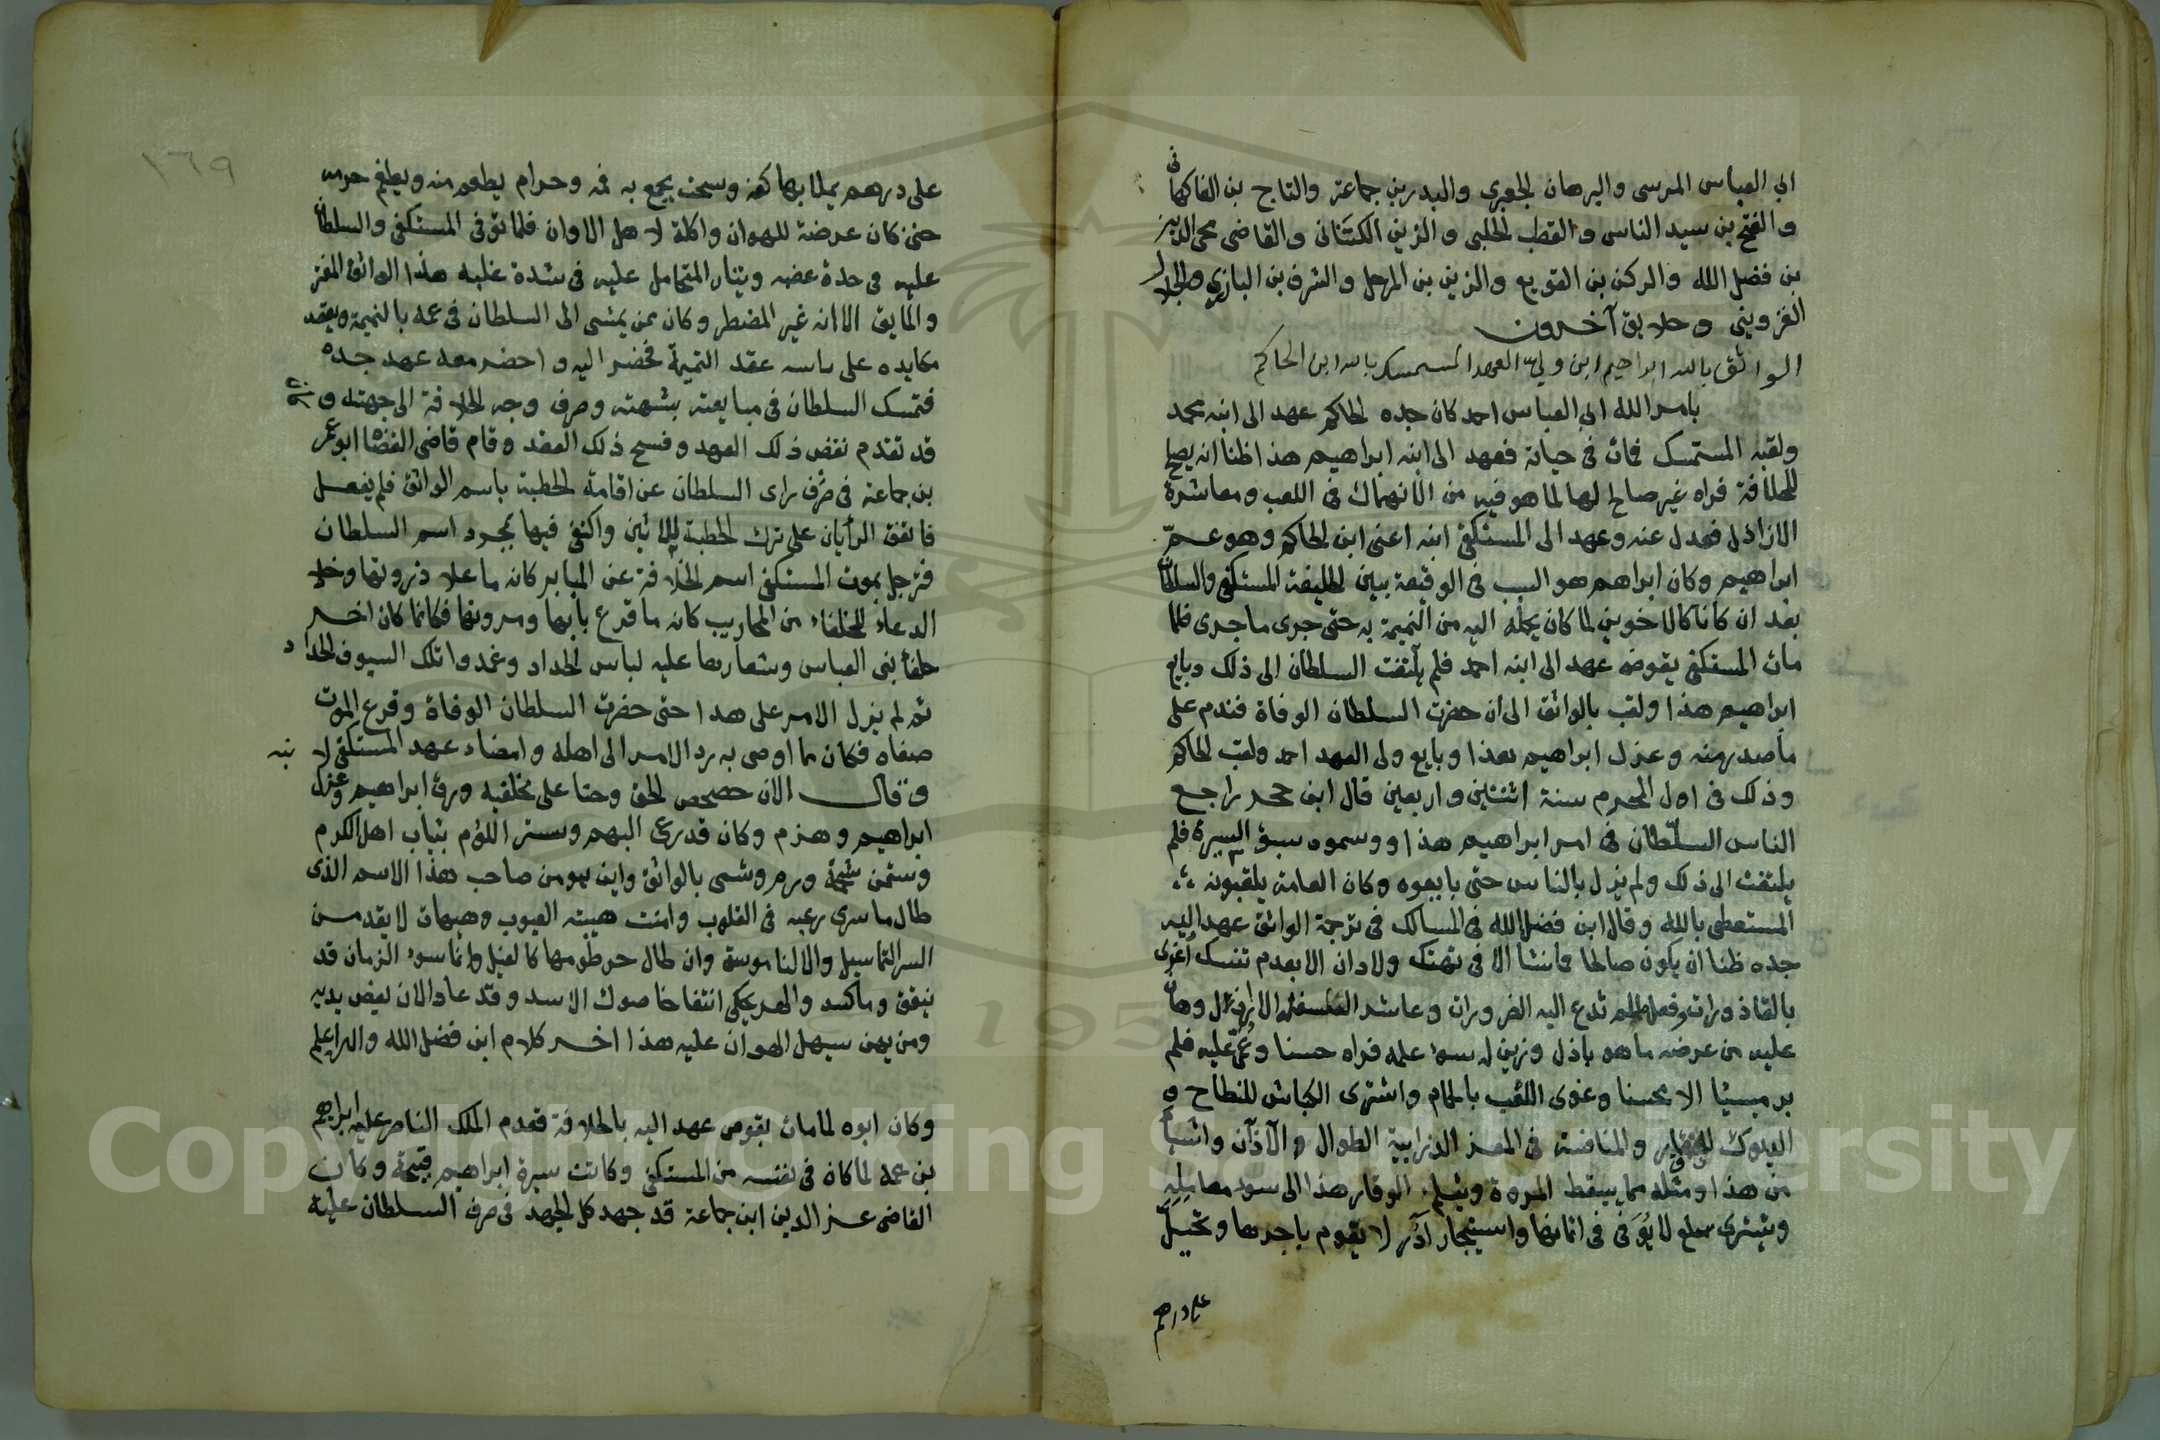 ابي العباس المرسى والبرهان الجعبرى والبدر بن جماعة والتاج بن الفاكهانى
والفتح بن سيد الناس والقطب الحلبى والزين الكتنانى والقاضى محى الدين
بن فضل الله والركن بن القويع والزين بن المرحل والشرف بن البازرى والجلال
القزوينى وخلايق آخرون
الواثق بالله ابراهيم ابن ولى العهد المستمسك بالله ابن الحاكم
بامر الله ابى العباس احمد كان جده الحاكم عهد الى ابنه محمد
ولقبه المستمسك فمات فى حياته فعهد الى ابنه ابراهيم هذا ظنا انه يصلح
للخلافة فراه غير صالح لها لما هو فيه من الانهماك فى اللعب ومعاشرة
الاراذل فعدل عنه وعهد الى المستكفى ابنه اعنى ابن الحاكم وهو عم
ابراهيم وكان ابراهيم هو السبب فى الوقيعة بين الخليفة المستكفى والسلطان
بعد ان كانا كالاخوين لما كان يحمله اليه من النميمة به حتى جرى ما جرى فلما
مات المستكفى بقوص عهد الى ابنه احمد فلم يلتفت السلطان الى ذلك وبايع
ابراهيم هذا ولقب بالواثق الى ان حضرت السلطان الوفاة فندم على
ما صدر منه وعزل ابراهيم هذا وبايع ولى العهد احمد ولقب الحاكم
وذلك فى اول المحرم سنة اثنتين واربعين قال ابن حجر راجع
الناس السلطان فى امر ابراهيم هذا ووسموه بسؤ السيرة فلم
يلتفت الى ذلك ولم يزل بالناس حتى بايعوه وكان العامة يلقبونه
المستعطى بالله وقال ابن فضل الله فى المسالك فى ترجمة الواثق عهد اليه
جده ظنا ان يكون صالحا فما نشا الا فى تهتك ولا دان الا بعدم تنسك اغرى
بالقاذورات وفعل ما لم تدع اليه الضرورات وعاشر السفلة الاراذل وهان
عليه من عرضه ما هو باذل وزين له سوء عمله فراه حسنا وعمى عليه فلم
ير مسيئا الا محسنا وغوى اللعب بالحمام واشترى الكباش للنطاح و
الديوك للنقار والمنافسة فى المعز الزرابية الطوال الآذان واشيا
من هذا ومثله مما يسقط المروة ويثلم الوقار هذا الى سوء معاملته
ويشترى سلع لا يوفى فى اثمانها واستيجار آدر لا يقوم باجرها وتحيل
على درهم
١٦٩
على درهم يملا بها كفه وسحت يجمع به فمه وحرام يطعم منه ويطعم حرمه
حتى كان عرضة للهوان واكلة لاهل الاوان فلما توفى المستكفى والسلطان
عليه فى حدة غضبه وتيار المتحامل عليه فى شدة غلبه هذا الواثق المغتر
والمايق الا انه غير المضطر وكان ممن يمشى الى السلطان فى عمه بالنميمة ويعقد
مكايده على راسه عقد التميمة فحضر اليه واحضر معه عهد جده
فتمسك السلطان فى مبايعته بشبهته وصرف وجه الخلافة الى جهته و
قد تقدم نقض ذلك العهد وفسخ ذلك العقد وقام قاضى القضاه ابو عمر
بن جماعة فى صرف راى السلطان عن اقامة الخطبة باسم الواثق فلم يفعل
فاتفق الرأيان على ترك الخطبة للاثنين واكتفى فيها بمجرد اسم السلطان
فرحل بموت المستكفى اسم الخلافة عن المنابر كانه ما علا ذروتها وخلا
الدعاء للخلفاء من المحاريب كانه ما قرع بابها ومروتها فكانما كان اخر
خلفاء بنى العباس وشعارها عليه لباس الحداد وغمدوا تلك السيوف الحداد
ثم لم يزل الامر على هذا حتى حضرت السلطان الوفاة وقرع الموت
صفاه فكان مما اوصى به رد الامر الى اهله وامضاء عهد المستكفى لابنه
وقال الان حصحص الحق وحنا على مخلفيه ورق ابراهيم وعزل
ابراهيم وهزم وكان قد رعى البهم وستر اللؤم بثياب اهل الكرم
وتسمن شحمة ورم وتسمى بالواثق واين هو من صاحب هذا الاسم الذى
طال ما سرى رعبه فى القلوب وامنت هيبته العيوب وهيهات لا يعد من
السر التماسيل والا لناموسة وان طال خرطومها كالفيل وانما سوء الزمان قد
ينفق وما كسد والهر يحكى انتفاخا صولة الاسد وقد عاد الان يعض يديه
ومن يهن يسهل الهوان عليه هذا اخر كلام ابن فضل الله والله اعلم
وكان ابوه لما مات بقوص عهد اليه بالخلافة فقدم الملك الناصر عليه ابراهيم
بن عمه لما كان فى نفسه من المستكفى وكانت سيرة ابراهيم قبيحة وكان
القاضى عز الدين ابن جماعة قد جهد كل الجهد فى صرف السلطان عليه
Copyright © King Saud University
1957